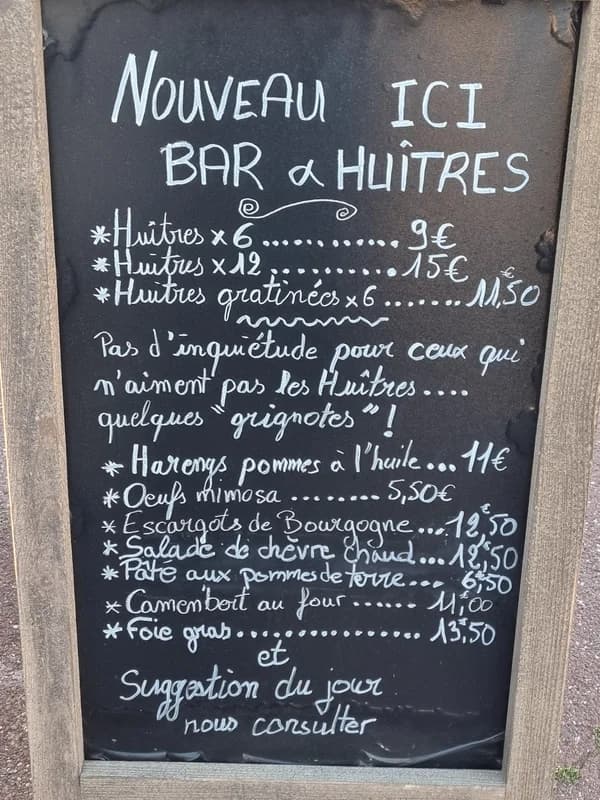 NOUVEAU ICI
BAR à HUÎTRES
*Huîtres x 6............ 9€
*Huîtres x12.......... 15€
*Huîtres gratinées x 6....... 11,€50
Pas d'inquiétude pour ceux qui
n'aiment pas les Huîtres....
quelques "grignotes"!
* Harengs pommes à l'huile... 11€
*Oeufs mimosa ......... 5,50€
* Escargots de Bourgogne.... 12,€50
* Salade de chèvre chaud... 12,€50
* Pâté aux pommes de terre... 6,€50
* Camembert au four ...... 11,€00
* Foie gras.................. 13,50
et
Suggestion du jour
nous consulter